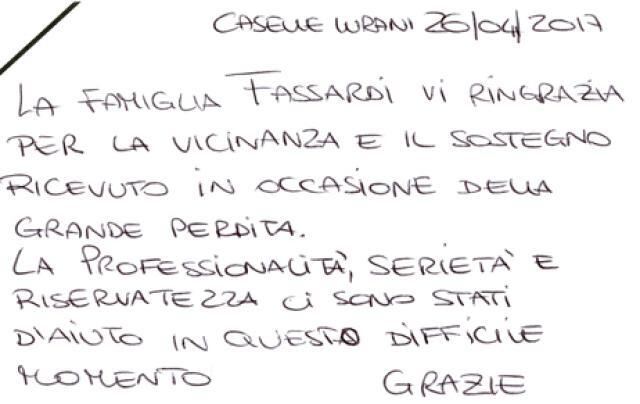 CASELLE LURANI 26/04/2017
LA FAMIGLIA FASSARDI VI RINGRAZIA
PER LA VICINANZA E IL SOSTEGNO
RICEVUTO IN OCCASIONE DELLA
GRANDE PERDITA.
LA PROFESSIONALITÀ, SERIETÀ E
RISERVATEZZA CI SONO STATI
D'AIUTO IN QUESTO DIFFICILE
MOMENTO GRAZIE